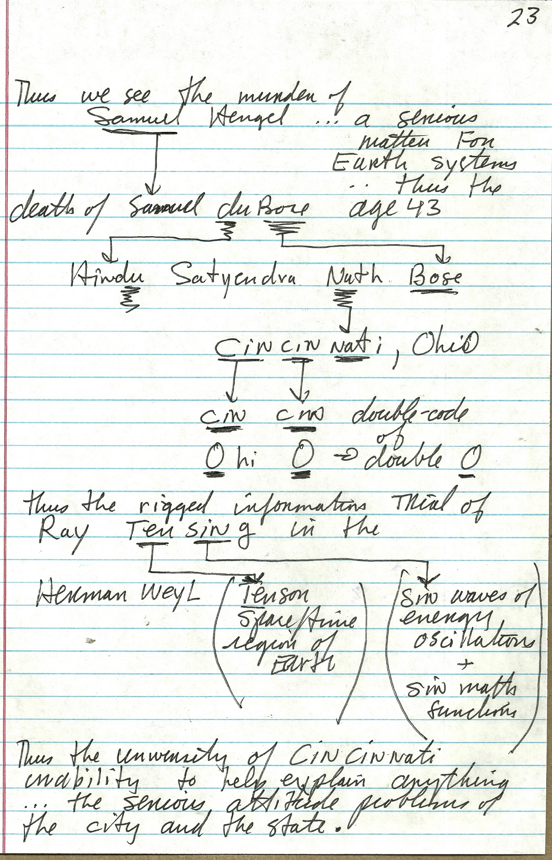 23
Thus we see the murder of
Samuel Hengel ... a serious
matter For
Earth systems
... thus the
death of Samuel du Bose age 43
Hindu Satyendra Nath Bose
CiN CiN Nati, OhiO
CiN CiN double-code
of
O hi O → double O
thus the rigged information Trial of
Ray Ten sin g in the
Herman WeyL
(Tensor
space/time
region of
Earth)
(Sin waves of
energy
oscillations
+
sin math
functions)
Thus the university of CiN CiN Nati
inability to help explain anything
... the serious attitude problems of
the city and the state.